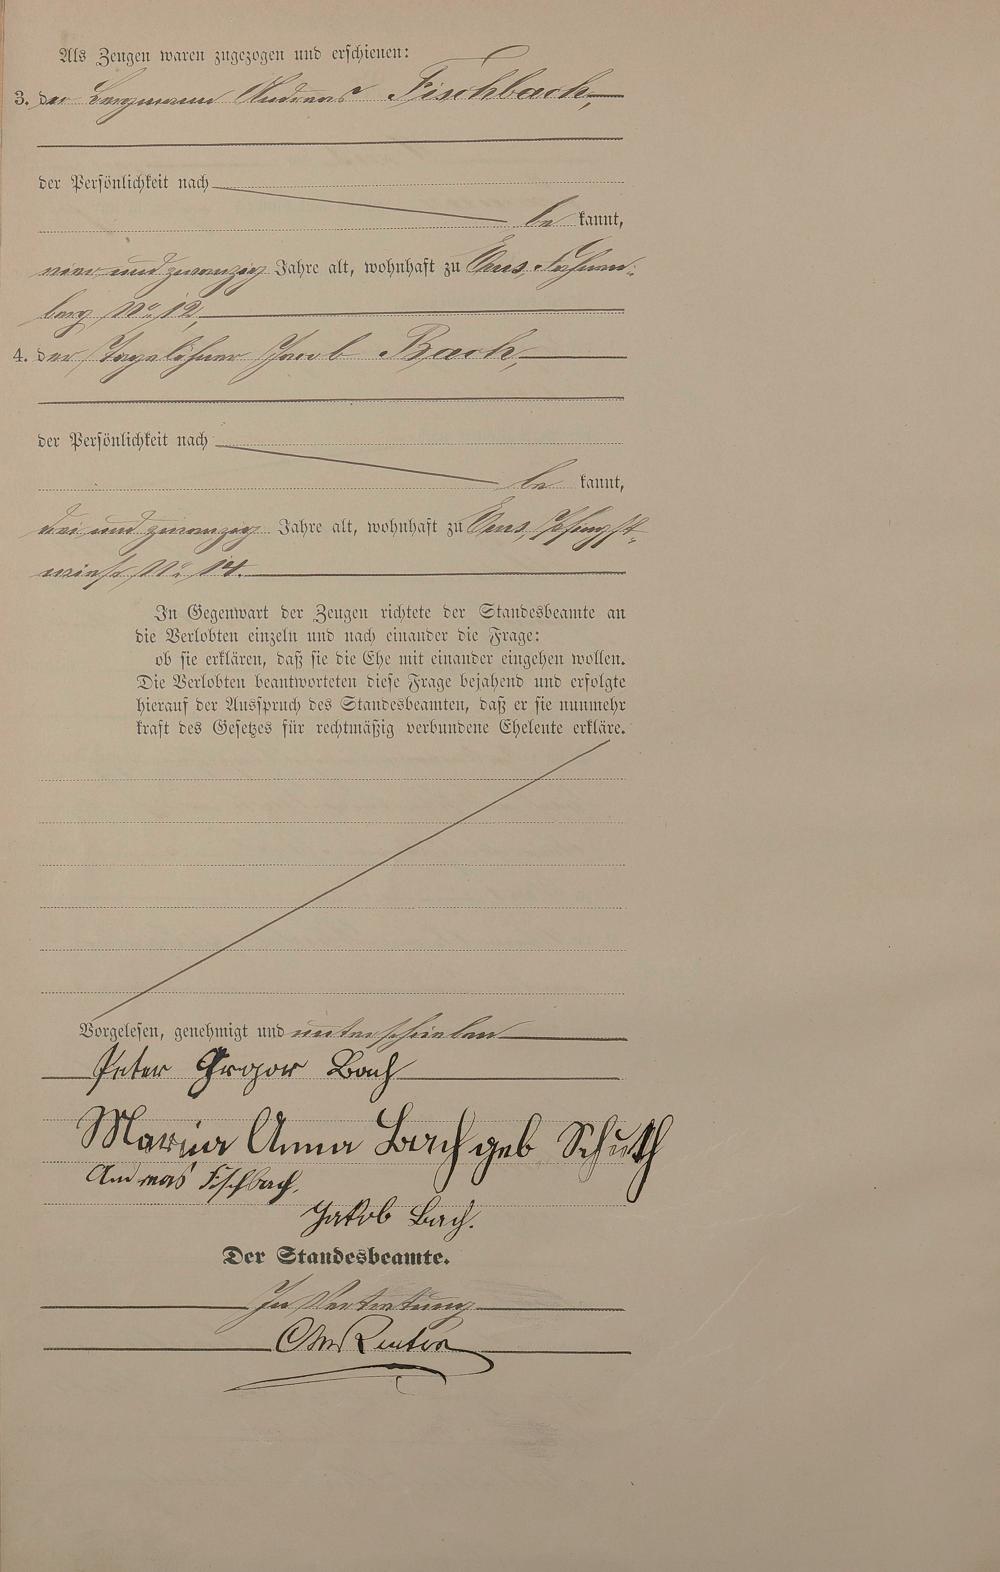 Als Zeugen waren zugezogen und erschienen:
3. der Bergmann Andreas Fischbach,
der Persönlichkeit nach
be kannt,
vier und zwanzig Jahre alt, wohnhaft zu Ems,
berg No 12,
4. der Tagelöhner Jacob Bach,
der Persönlichkeit nach
be kannt,
drei und zwanzig Jahre alt, wohnhaft zu Ems, Pfingst-
wiese No 14.
In Gegenwart der Zeugen richtete der Standesbeamte an
die Verlobten einzeln und nach einander die Frage:
ob sie erklären, daß sie die Ehe mit einander eingehen wollen.
Die Verlobten beantworteten diese Frage bejahend und erfolgte
hierauf der Ausspruch des Standesbeamten, daß er sie nunmehr
kraft des Gesetzes für rechtmäßig verbundene Eheleute erkläre.
Vorgelesen, genehmigt und unterschrieben
Peter Gregor Bach
Maria Anna Bach geb Schuth
Andreas Fischbach.
Jakob Bach.
Der Standesbeamte.
In Vertretung